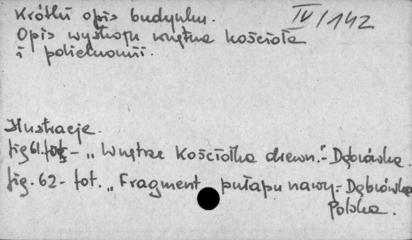 Krótki opis budynku.
IV/142
Opis wystroju wnętrza kościoła
i polichromii.
Ilustracje.
fig 61. fot - "Wnętrze Kościółka drewn." - Dąbrówka.
fig. 62 - fot. "Fragment pułapu nawy - Dąbrówka
Polska.